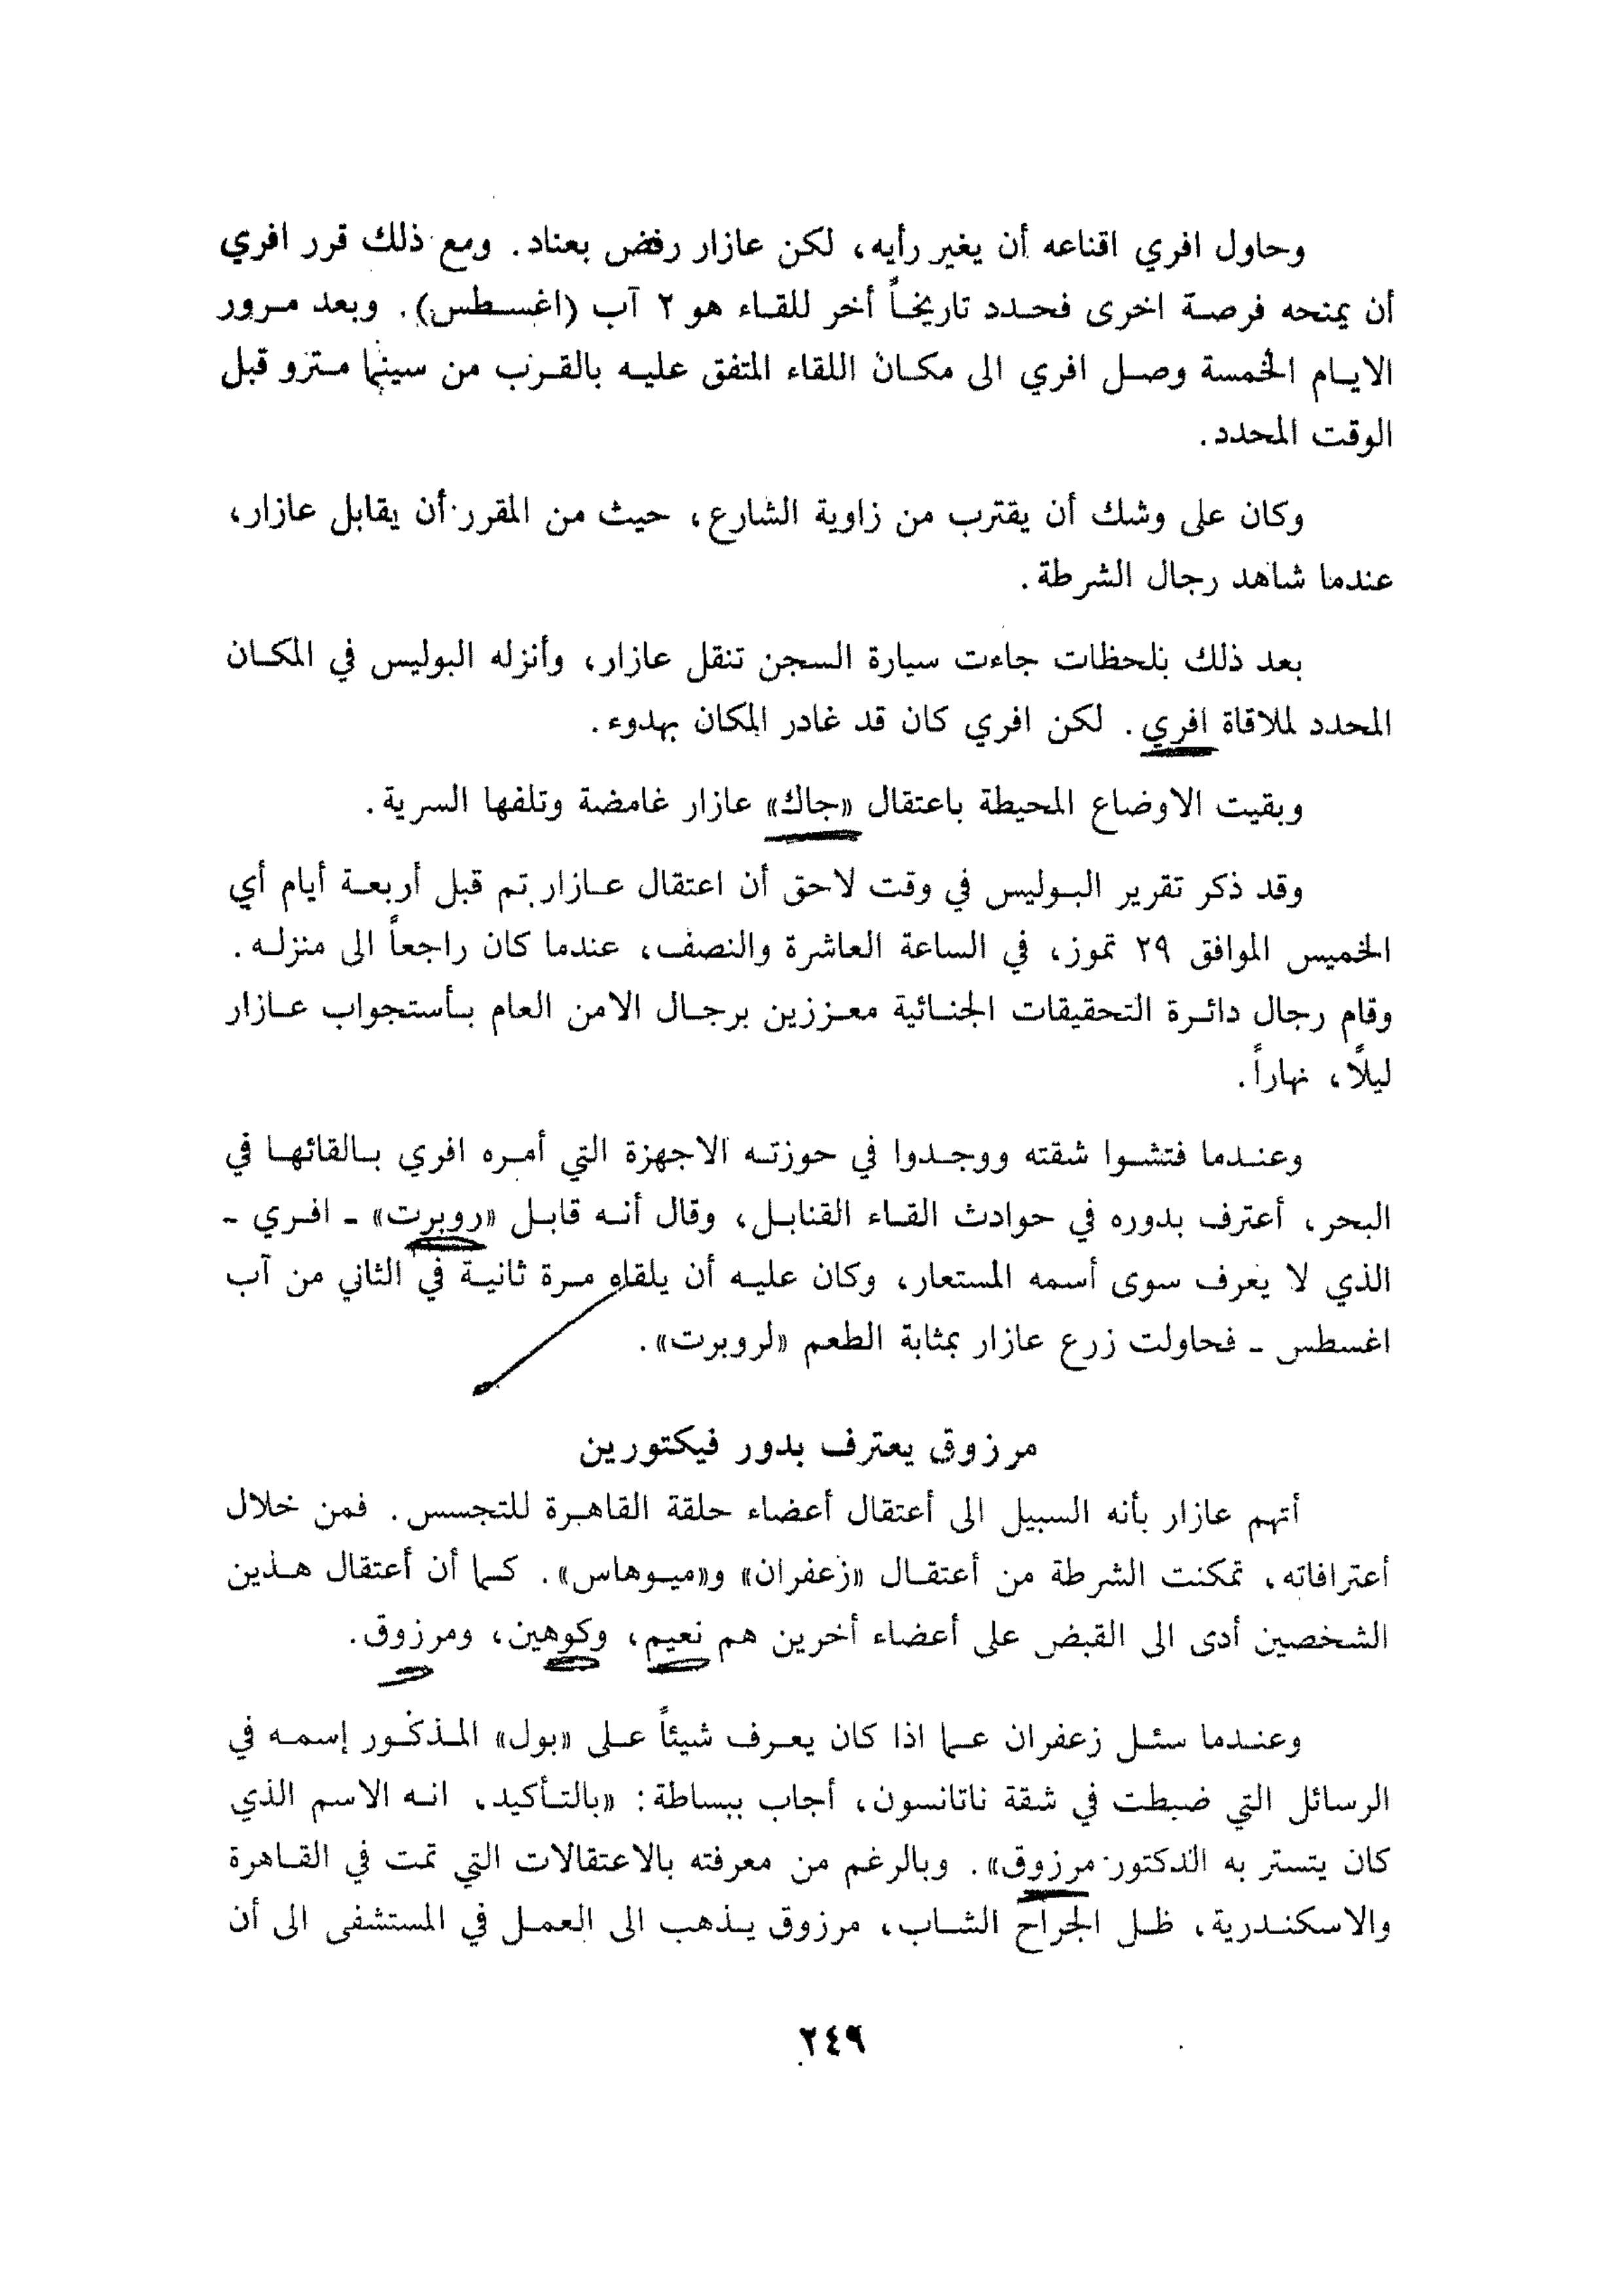 وحاول افري اقناعه أن يغير رأيه، لكن عازار رفض بعناد. ومع ذلك قرر افري
أن يمنحه فرصة اخرى فحدد تاريخاً أخر للقاء هو ٢ آب (اغسطس). وبعد مرور
الايام الخمسة وصل افري الى مكان اللقاء المتفق عليه بالقرب من سينما مترو قبل
الوقت المحدد.
وكان على وشك أن يقترب من زاوية الشارع، حيث من المقرر أن يقابل عازار،
عندما شاهد رجال الشرطة.
بعد ذلك بلحظات جاءت سيارة السجن تنقل عازار، وأنزله البوليس في المكان
المحدد لملاقاة افري. لكن افري كان قد غادر المكان بهدوء.
وبقيت الاوضاع المحيطة باعتقال «جاك» عازار غامضة وتلفها السرية.
وقد ذكر تقرير البوليس في وقت لاحق أن اعتقال عازار تم قبل أربعة أيام أي
الخميس الموافق ٢٩ تموز، في الساعة العاشرة والنصف، عندما كان راجعاً الى منزله.
وقام رجال دائرة التحقيقات الجنائية معززين برجال الامن العام بأستجواب عازار
ليلاً، نهاراً.
وعندما فتشوا شقته ووجدوا في حوزته الاجهزة التي أمره افري بالقائها في
البحر، أعترف بدوره في حوادث القاء القنابل، وقال أنه قابل «روبرت» - افري -
الذي لا يعرف سوى أسمه المستعار، وكان عليه أن يلقاه مرة ثانية في الثاني من آب
اغسطس - فحاولت زرع عازار بمثابة الطعم «لروبرت».
مرزوق يعترف بدور فيكتورين
أتهم عازار بأنه السبيل الى أعتقال أعضاء حلقة القاهرة للتجسس. فمن خلال
أعترافاته، تمكنت الشرطة من أعتقال «زعفران» و«ميوهاس». كما أن أعتقال هذين
الشخصين أدى الى القبض على أعضاء أخرين هم نعيم، وكوهين، ومرزوق.
وعندما سئل زعفران عما اذا كان يعرف شيئاً على «بول» المذكور إسمه في
الرسائل التي ضبطت في شقة ناتانسون، أجاب ببساطة: «بالتأكيد، انه الاسم الذي
كان يتستر به الدكتور مرزوق». وبالرغم من معرفته بالاعتقالات التي تمت في القاهرة
والاسكندرية، ظل الجراح الشاب، مرزوق يذهب الى العمل في المستشفى الى أن
٢٤٩